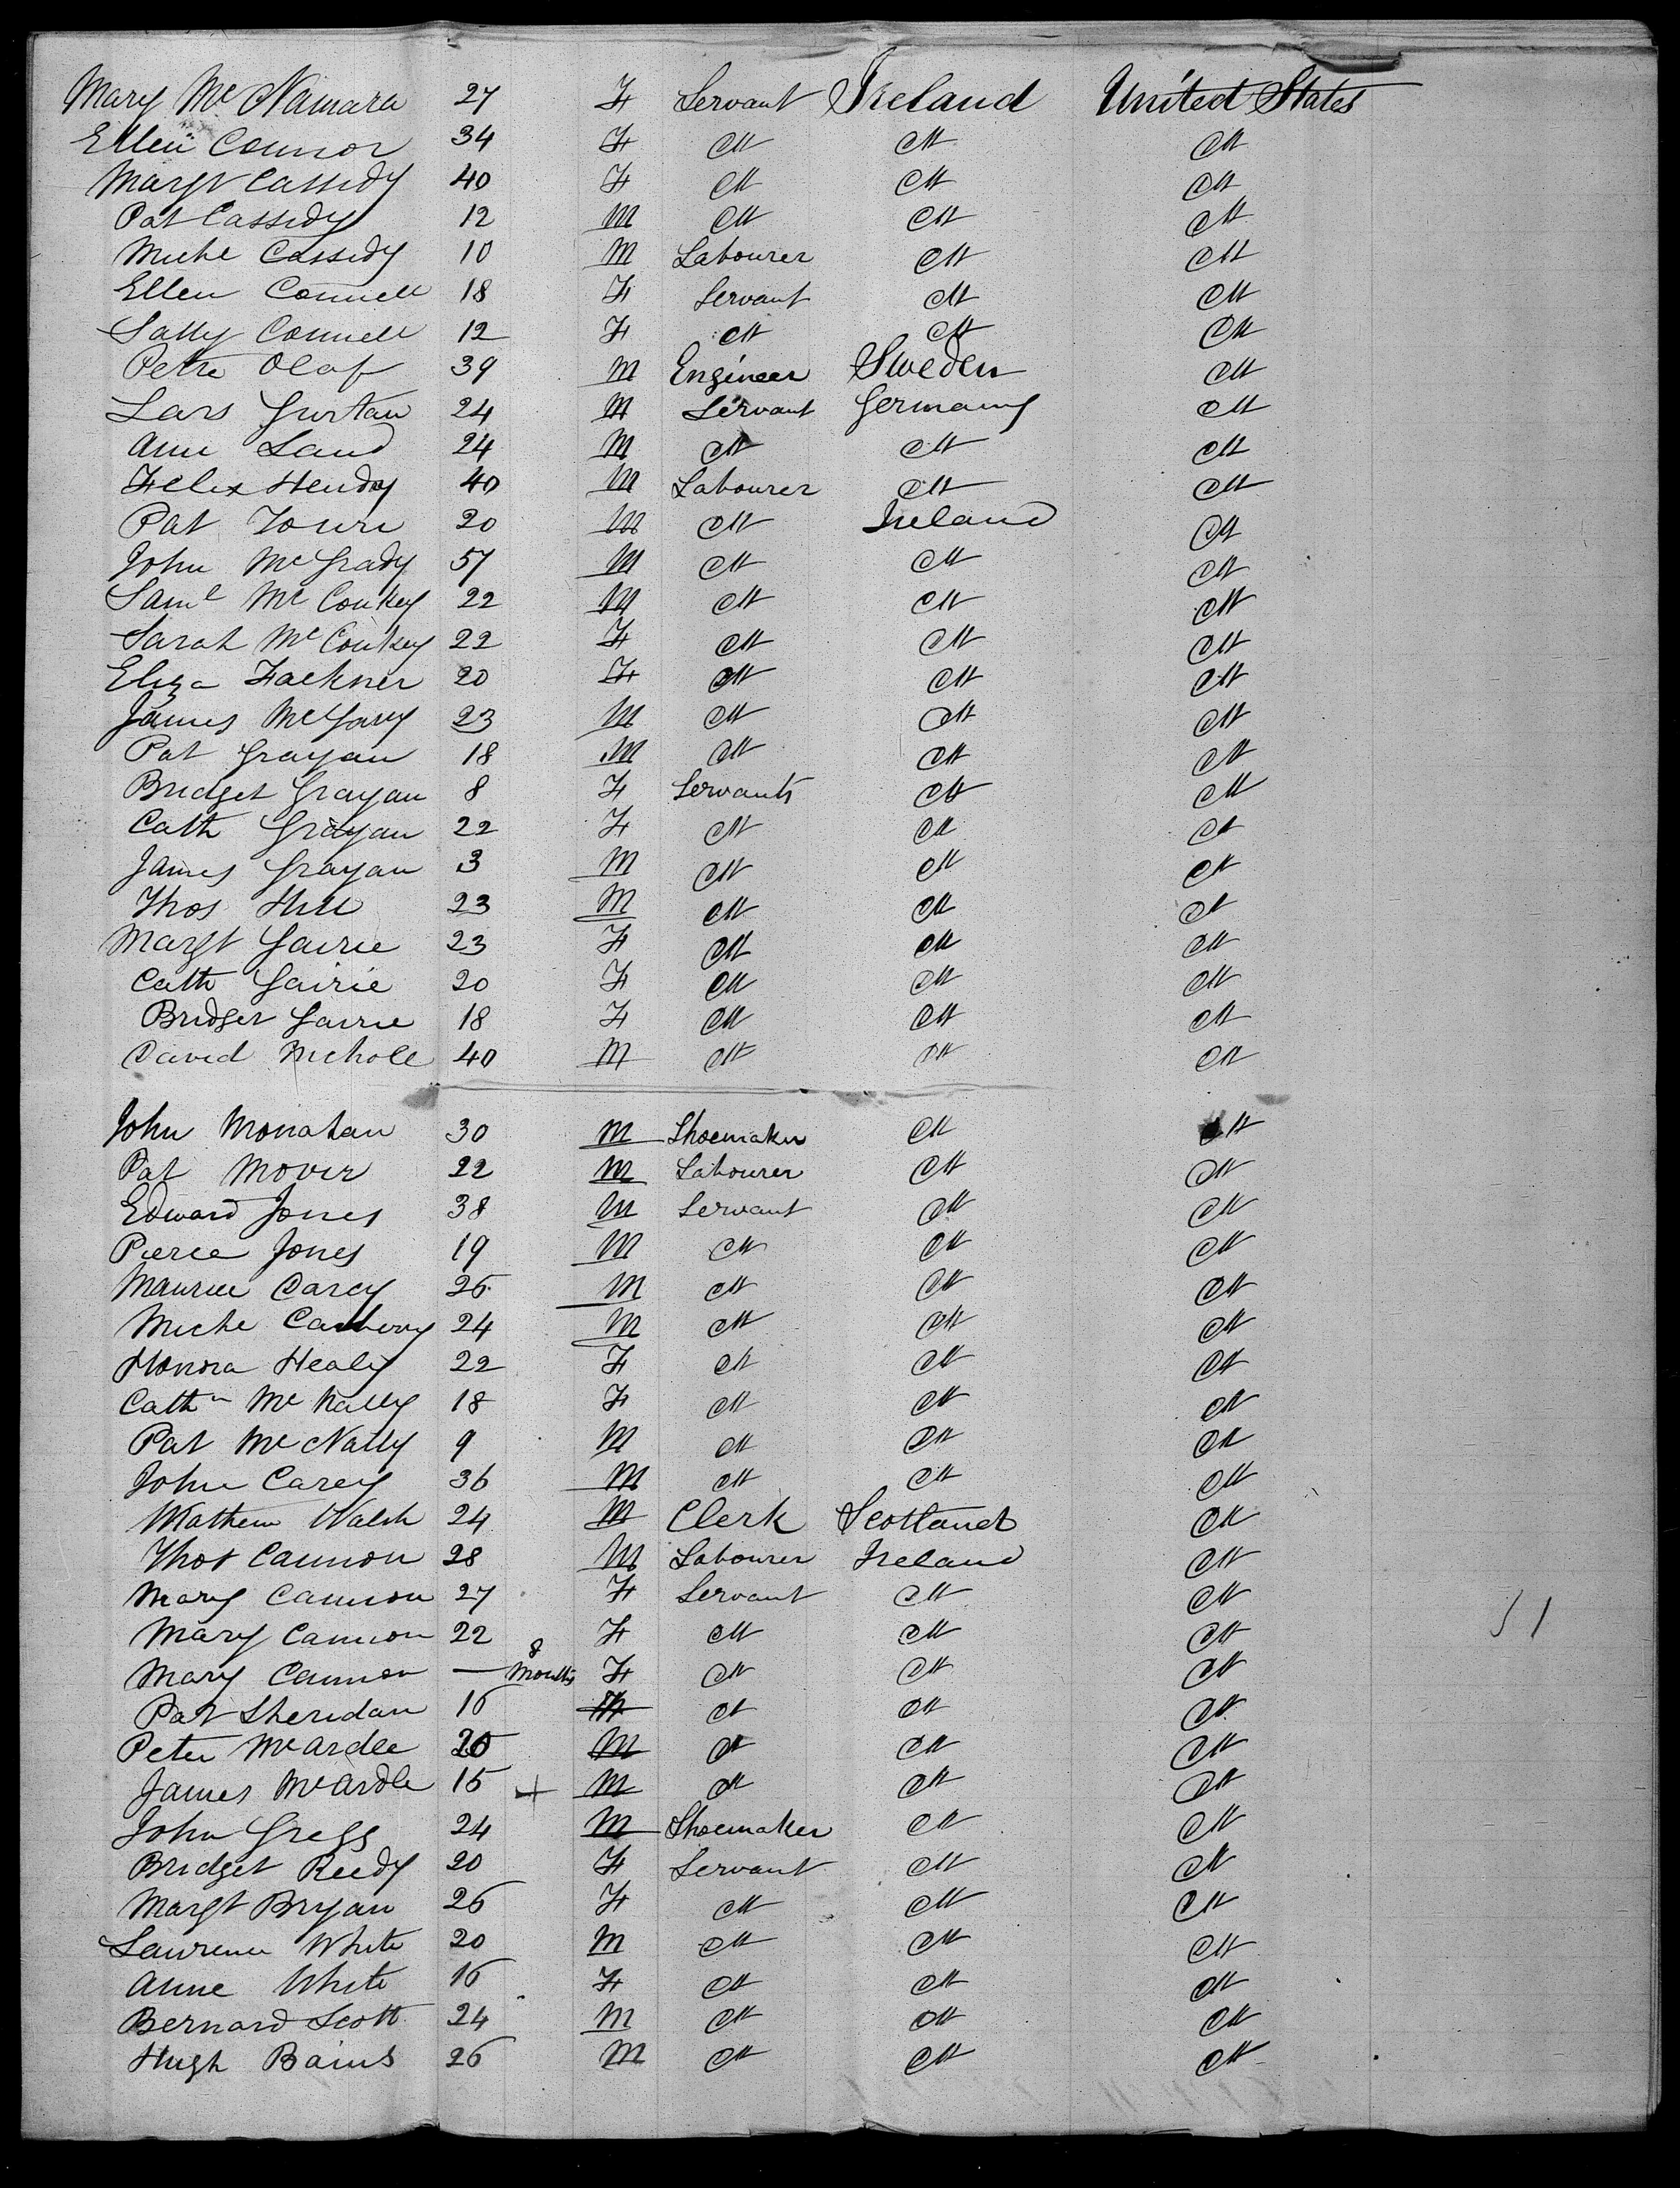 Mary McNamara 27 F Servant Ireland United States
Ellen Connor 34 F do do do
Margt Cassidy 40 F do do do
Pat Cassidy 12 M do do do
Miche Cassidy 10 M Labourer do do
Ellen Connell 18 F Servant do do
Sally Connell 12 F do do do
Petre Olaf 39 M Engineer Sweden do
Lars Gurtau 24 M Servant Germany do
Ann Land 24 M do do do
Felix Hendry 40 M Labourer do do
Pat 20 M do Ireland do
John McGrady 57 M do do do
Saml McConkey 22 M do do do
Sarah McConkey 22 F do do do
Eliza Fackner 20 F do do do
James McGary 23 M do do do
Pat Grayan 18 M do do do
Bridget Grayan 8 F Servants do do
Cath Grayan 22 F do do do
James Grayan 3 M do do do
Thos Hill 23 M do do do
Margt Gairie 23 F do do do
Cath Gairie 20 F do do do
Bridget Gairie 18 F do do do
David Nichole 40 M do do do
John Monahan 30 M Shoemaker do do
Pat Mover 22 M Labourer do do
Edward Jones 38 M Servant do do
Pierce Jones 19 M do do do
Maurice Carey 26 M do do do
Miche 24 M do do do
Honora Healy 22 F do do do
Cathn McNally 18 F do do do
Pat McNally 9 M do do do
John Carey 36 M do do do
Mathew Walsh 24 M Clerk Scotland do
Thos Cannon 28 M Labourer Ireland do
Mary Cannon 27 F Servant do do
Mary Cannon 22 F do do do
Mary Cannon — 8 Months F do do do
Pat Sheridan 16 M do do do
Peter McArdle 20 M do do do
James McArdle 15 + M do do do
John Gregg 24 M Shoemaker do do
Bridget Reedy 20 F Servant do do
Margt Bryan 26 F do do do
Lawrence White 20 M do do do
Anne White 16 F do do do
Bernard Scott 24 M do do do
Hugh Bains 26 M do do do